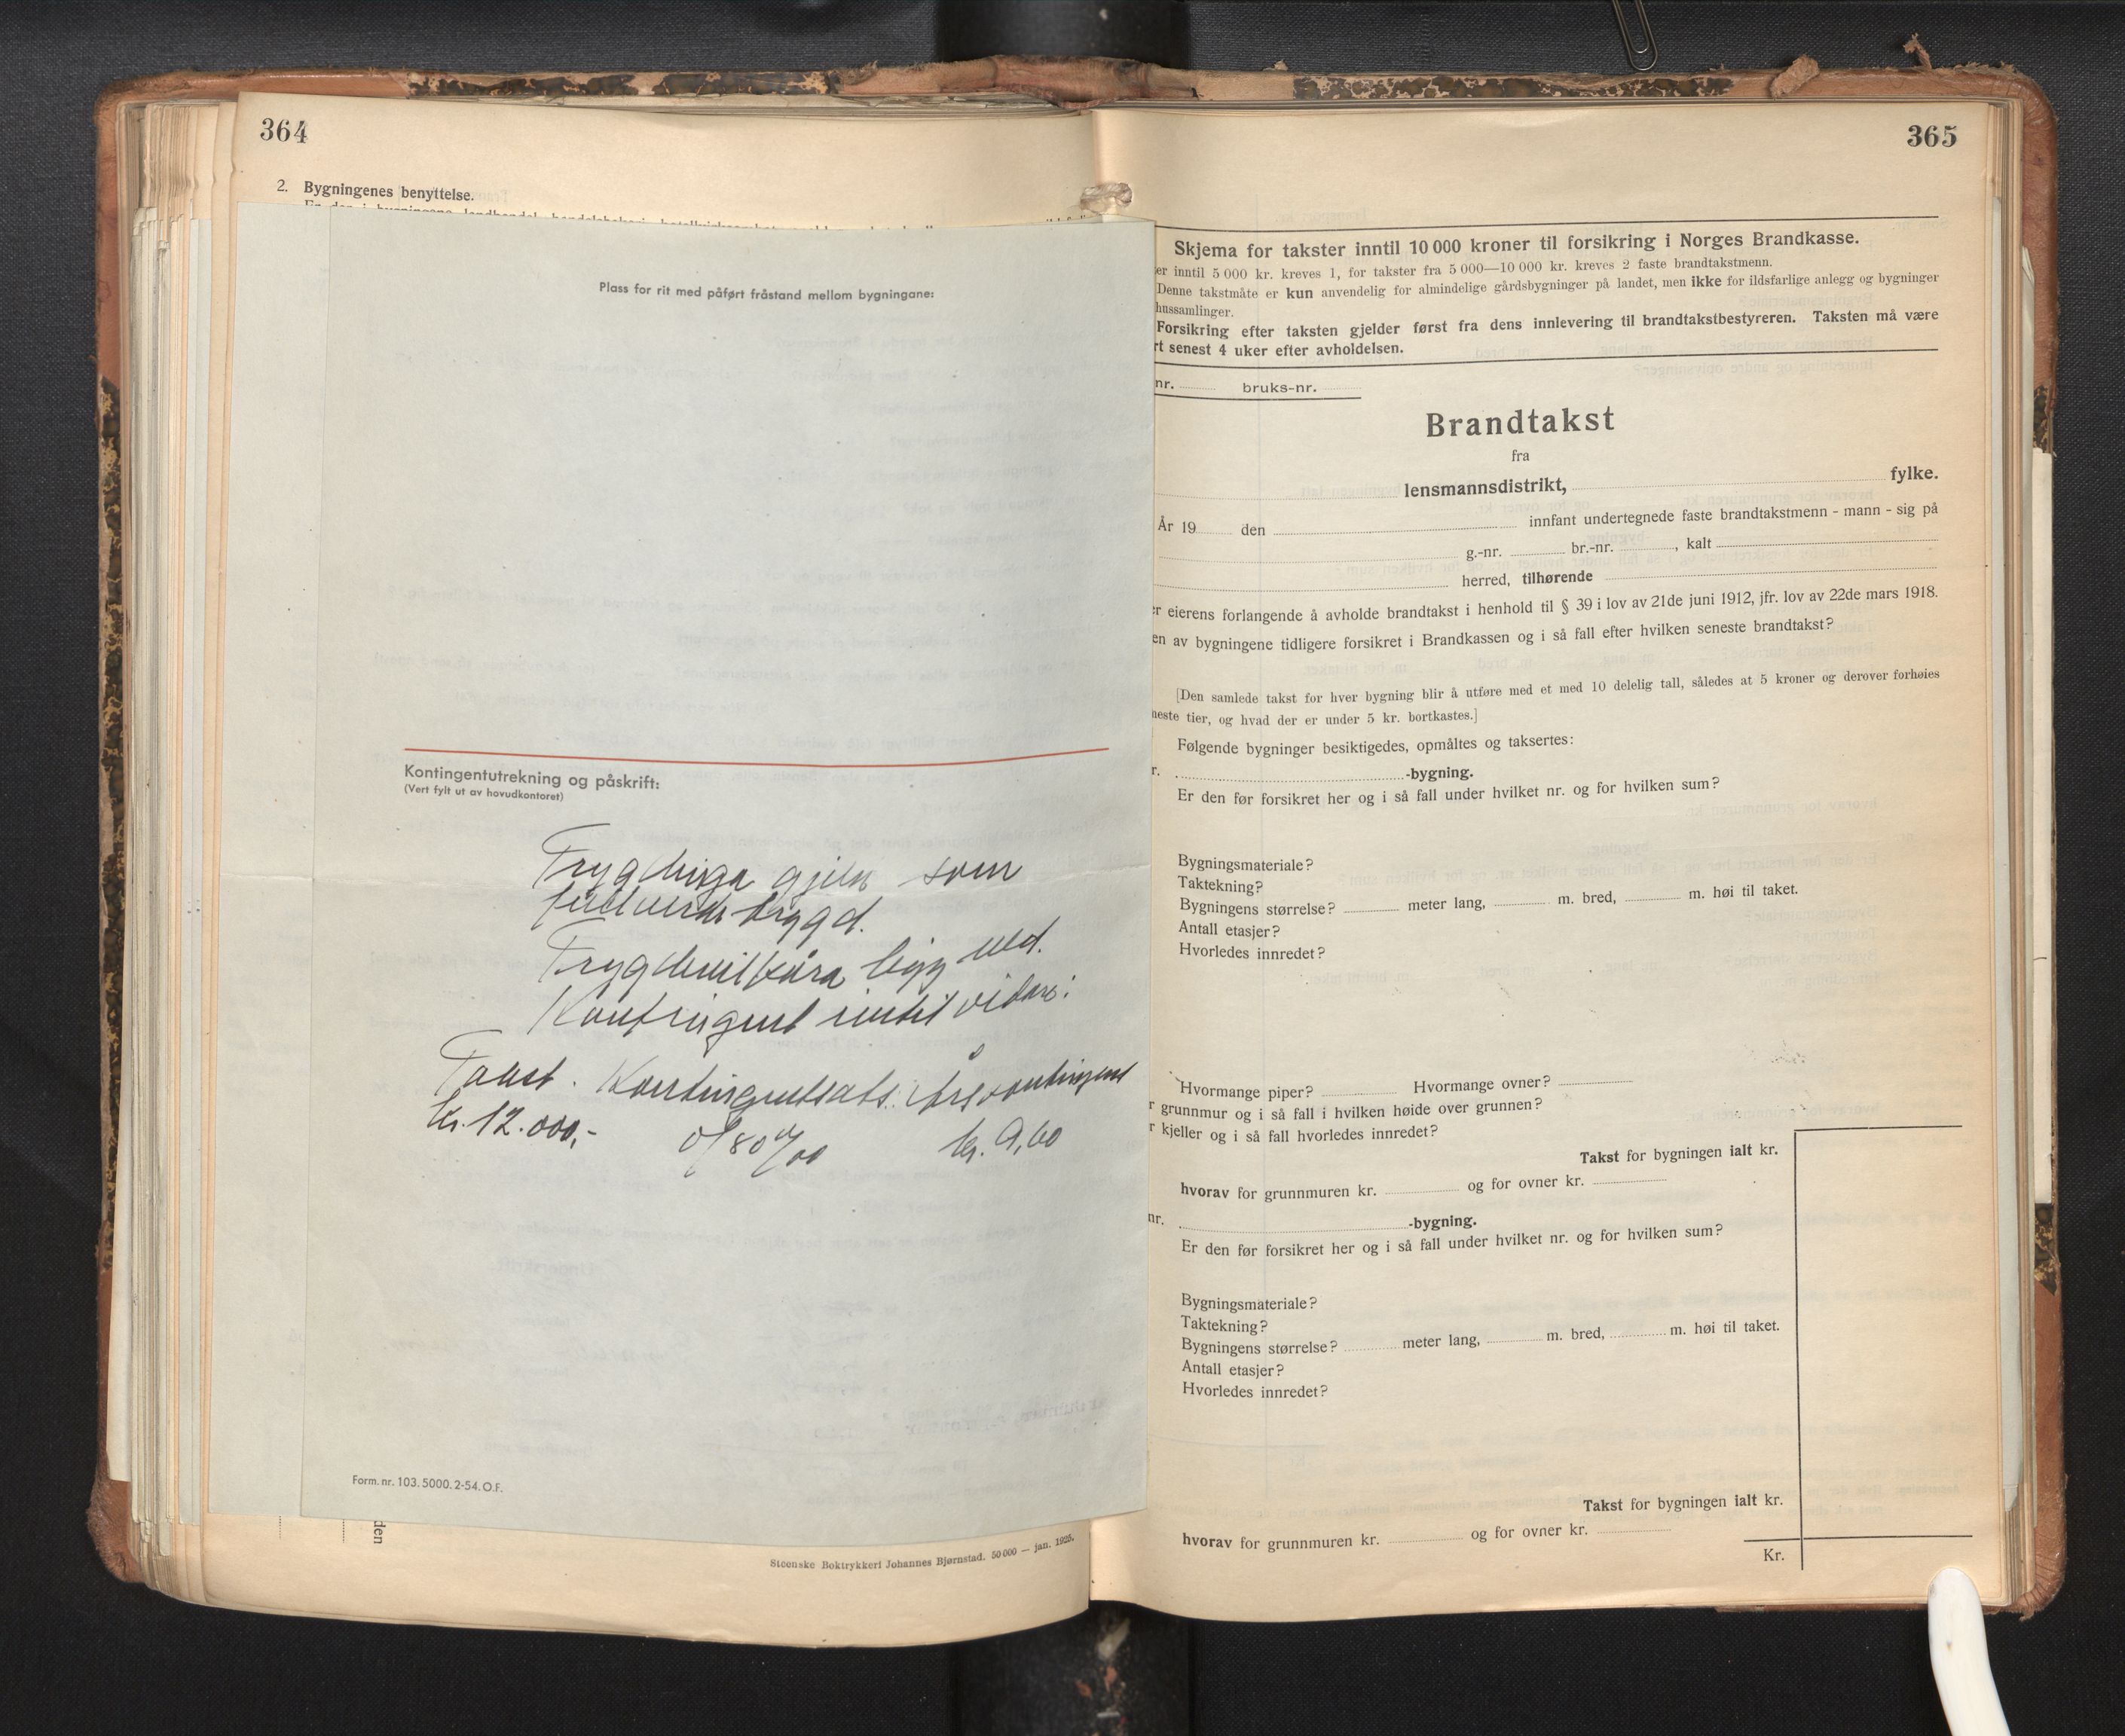 364
2. Bygningenes benyttelse.
Plass for rit med påført fråstand mellom bygningane:
Kontingentutrekning og påskrift:
(Vert fylt ut av hovudkontoret)
Trygdinga gjeld som
fullverdetrygd.
Trygdevilkåra ligg ved.
Kontingent inntil vidare:
Takst. Kontingentsats. Årskontingent
kr. 12.000,- 0/80 o/oo kr. 9,60
Form. nr. 103. 5000. 2-54. O.F.
den
Steenske Boktrykkeri Johannes Bjørnstad. 50 000 — jan. 1925.
365
Skjema for takster inntil 10 000 kroner til forsikring i Norges Brandkasse.
er inntil 5 000 kr. kreves 1, for takster fra 5 000—10 000 kr. kreves 2 faste brandtakstmenn.
Denne takstmåte er kun anvendelig for almindelige gårdsbygninger på landet, men ikke for ildsfarlige anlegg og bygninger
hussamlinger.
Forsikring efter taksten gjelder først fra dens innlevering til brandtakstbestyreren. Taksten må være
rt senest 4 uker efter avholdelsen.
nr. bruks-nr.
Brandtakst
fra
lensmannsdistrikt, fylke.
År 19 den innfant undertegnede faste brandtakstmenn - mann - sig på
g.-nr. br.-nr. , kalt
herred, tilhørende
er eierens forlangende å avholde brandtakst i henhold til § 39 i lov av 21de juni 1912, jfr. lov av 22de mars 1918.
en av bygningene tidligere forsikret i Brandkassen og i så fall efter hvilken seneste brandtakst?
[Den samlede takst for hver bygning blir å utføre med et med 10 delelig tall, således at 5 kroner og derover forhøies
neste tier, og hvad der er under 5 kr. bortkastes.]
Følgende bygninger besiktigedes, opmåltes og taksertes:
r. -bygning.
Er den før forsikret her og i så fall under hvilket nr. og for hvilken sum?
Bygningsmateriale?
Taktekning?
Bygningens størrelse? meter lang, m. bred, m. høi til taket.
Antall etasjer?
Hvorledes innredet?
Hvormange piper? Hvormange ovner?
r grunnmur og i så fall i hvilken høide over grunnen?
r kjeller og i så fall hvorledes innredet?
Takst for bygningen ialt kr.
hvorav for grunnmuren kr. og for ovner kr.
nr. -bygning.
Er den før forsikret her og i så fall under hvilket nr. og for hvilken sum?
Bygningsmateriale?
Taktekning?
Bygningens størrelse? meter lang, m. bred, m. høi til taket.
Antall etasjer?
Hvorledes innredet?
Takst for bygningen ialt kr.
hvorav for grunnmuren kr. og for ovner kr.
Kr.